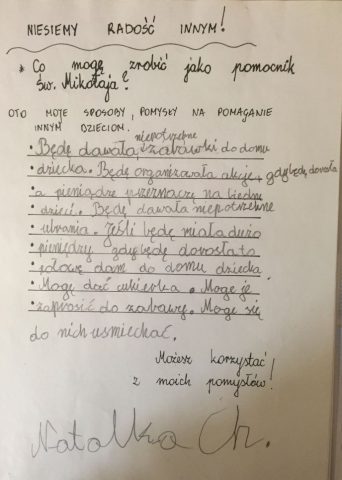 NIESIEMY RADOŚĆ INNYM!
* Co mogę zrobić jako pomocnik
Św. Mikołaja?
OTO MOJE SPOSOBY, POMYSŁY NA POMAGANIE
INNYM DZIECIOM.
niepotrzebne
• Będę dawała zabawki do domu
• dziecka. Będę organizowała akcje, gdy będę dorosła
a pieniądze przeznaczę na biedne
• dzieci. Będę dawała niepotrzebne
• ubrania. Jeśli będę miała dużo
pieniędzy gdy będę dorosłata
połowę dam do domu dziecka
• Mogę dać cukierka. Mogę je
• zaprosić do zabawy. Mogę się
do nich uśmiechać.
Możesz korzystać
z moich pomysłów!
Natalka Ch.